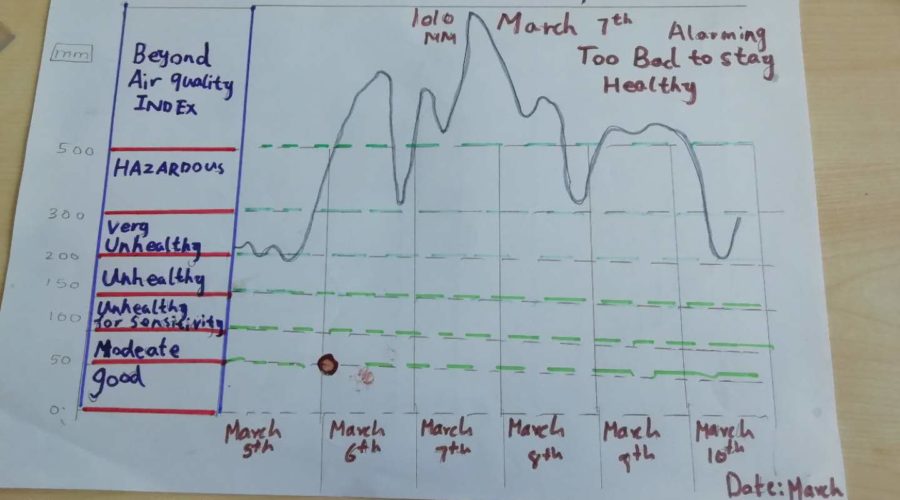 1010
MM
March 7th
Alarming
Too Bad to stay
Healthy
mm
Beyond
Air quality
INDEX
500
HAZARDOUS
300
Very
Unhealthy
200
Unhealthy
150
Unhealthy
for sensitivity
100
Modeate
50
good
0
March
5th
March
6th
March
7th
March
8th
March
9th
March
10th
Date: March